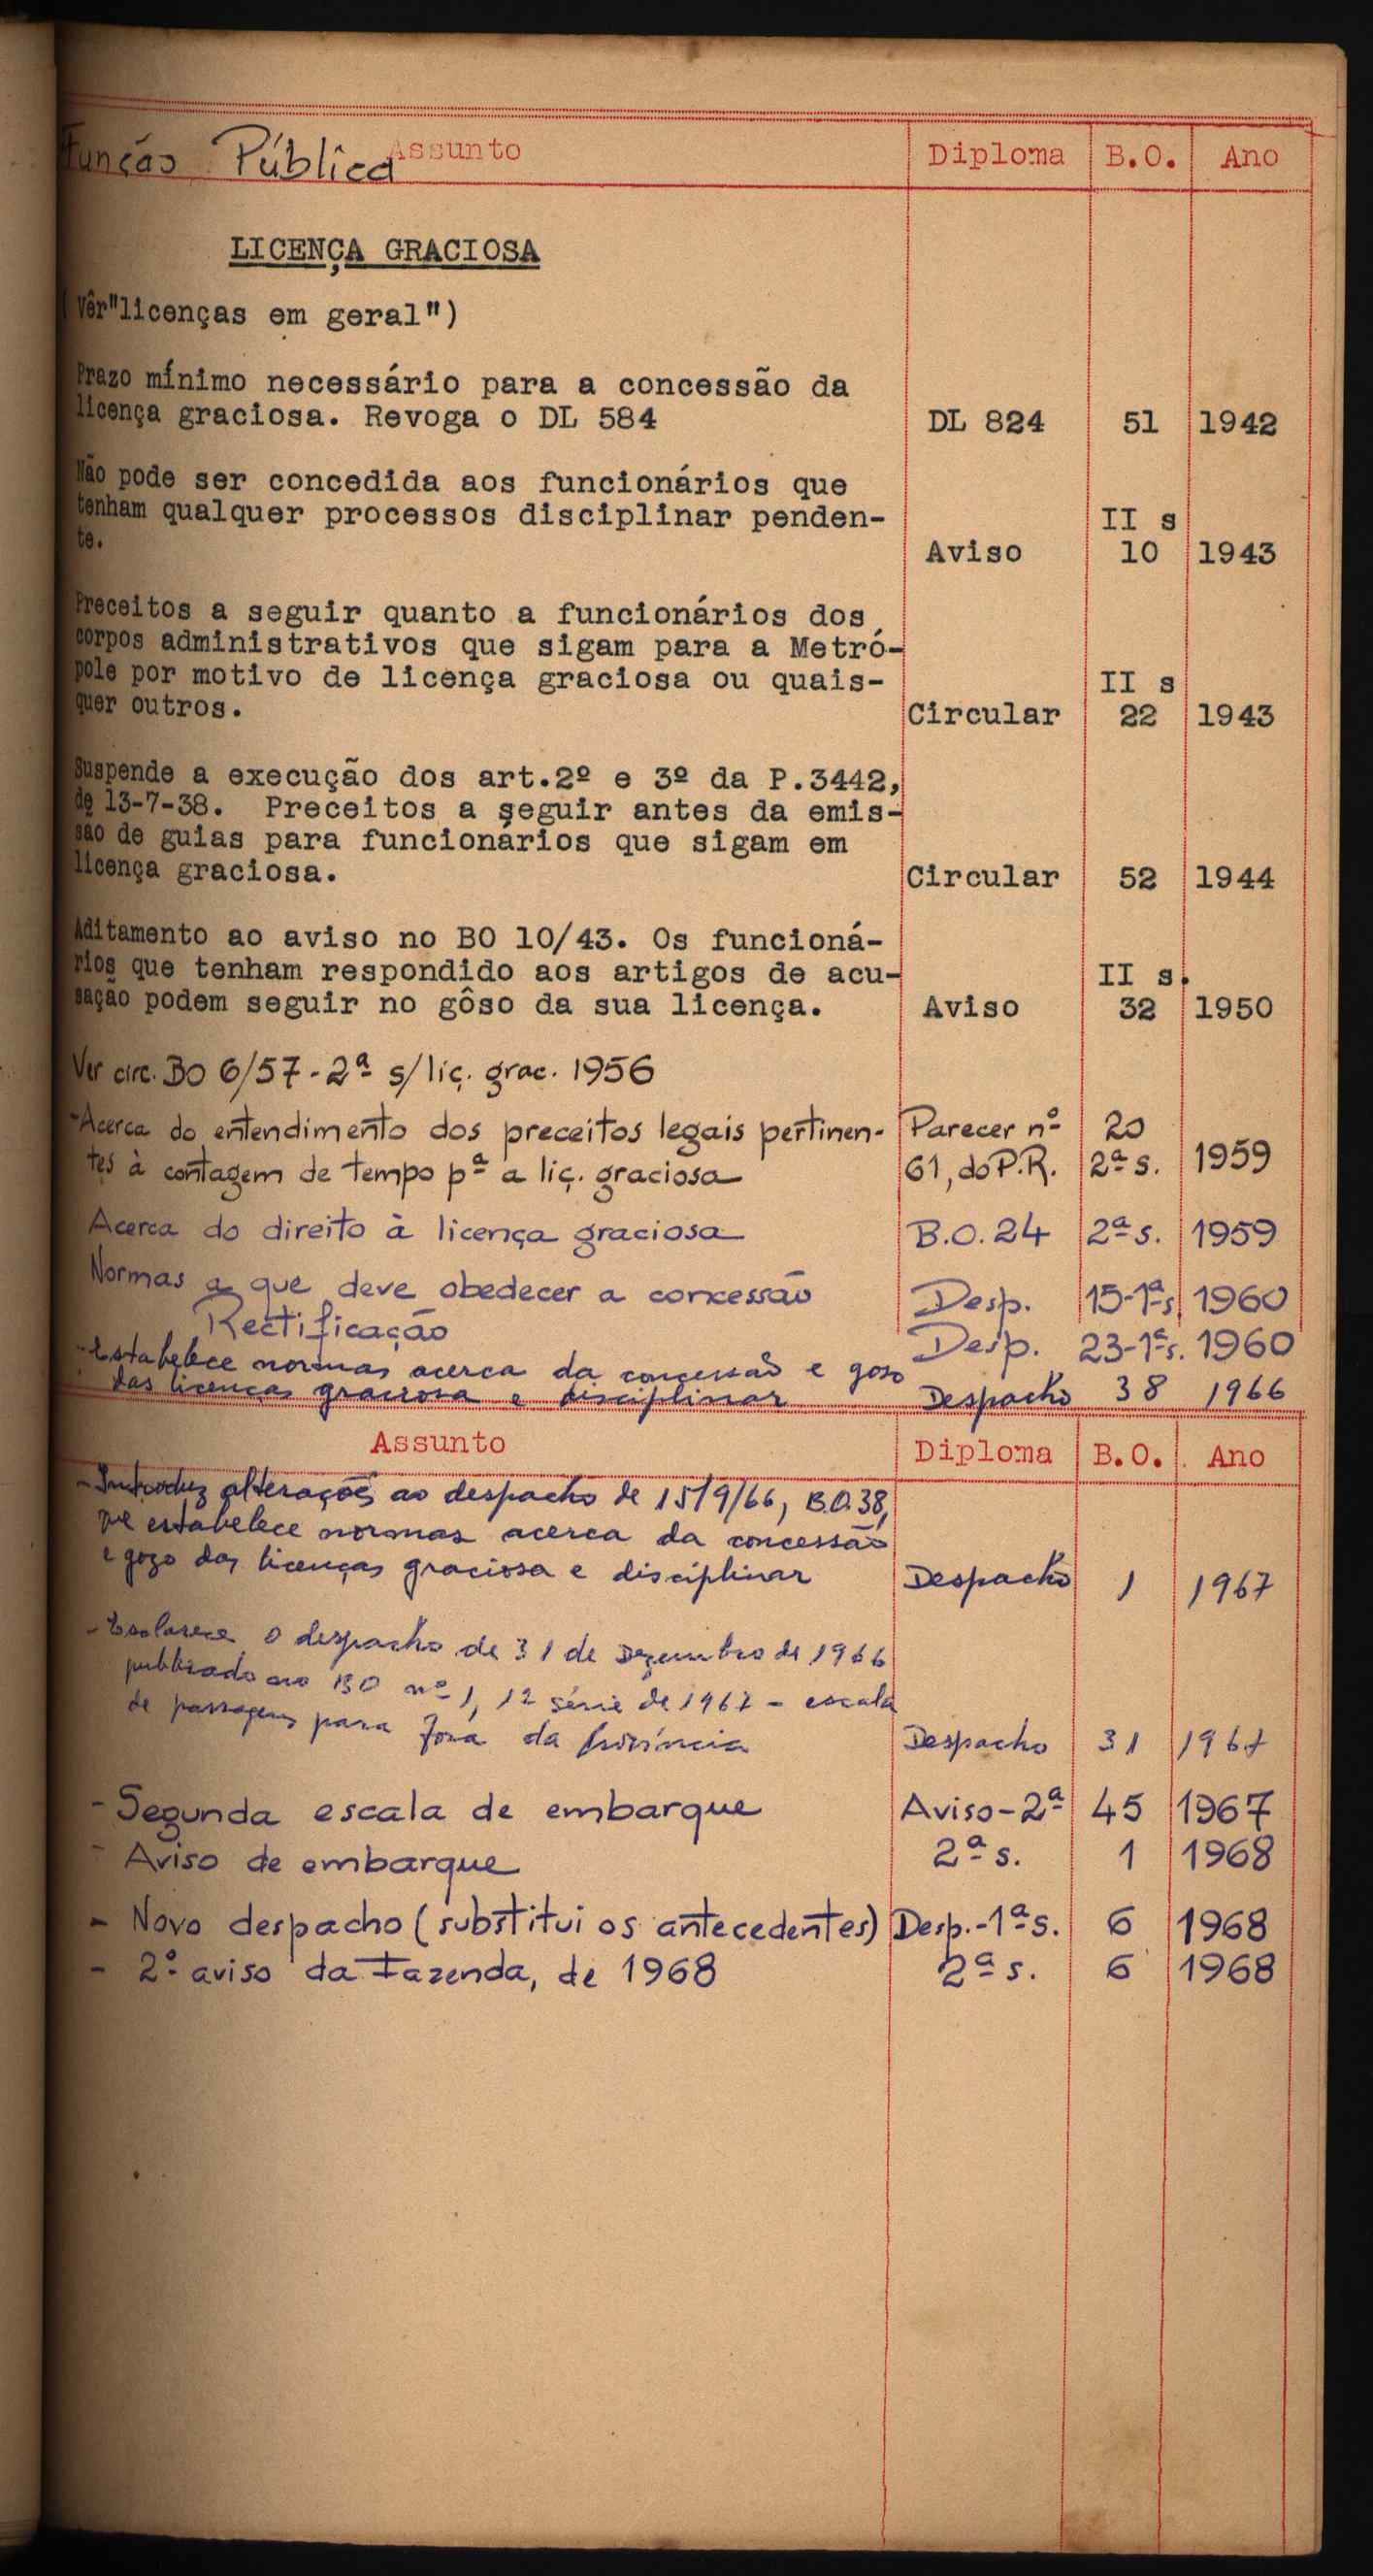 Função Pública
Assunto Diploma B.O. Ano
LICENÇA GRACIOSA
(Vêr"licenças em geral")
Prazo mínimo necessário para a concessão da
licença graciosa. Revoga o DL 584 DL 824 51 1942
Não pode ser concedida aos funcionários que
tenham qualquer processos disciplinar penden- II s
te. Aviso 10 1943
Preceitos a seguir quanto a funcionários dos
corpos administrativos que sigam para a Metró-
pole por motivo de licença graciosa ou quais- II s
quer outros. Circular 22 1943
Suspende a execução dos art.2º e 3º da P.3442,
de 13-7-38. Preceitos a seguir antes da emis-
são de guias para funcionários que sigam em
licença graciosa. Circular 52 1944
Aditamento ao aviso no BO 10/43. Os funcioná-
rios que tenham respondido aos artigos de acu- II s.
sação podem seguir no gôso da sua licença. Aviso 32 1950
Ver circ. BO 6/57 - 2ª s/liç. grac. 1956
- Acerca do entendimento dos preceitos legais pertinen- Parecer nº 20
tes à contagem de tempo pª a liç. graciosa 61, do P.R. 2ª s. 1959
Acerca do direito à licença graciosa B.O. 24 2ª s. 1959
Normas a que deve obedecer a concessão Desp. 15-1ª s. 1960
Rectificação Desp. 23-1ª s. 1960
- Estabelece normas acerca da concessão e goso
das licenças graciosa e disciplinar Despacho 38 1966
Assunto Diploma B.O. Ano
- Introduz alterações ao despacho de 15/9/66, B.O. 38,
que estabelece normas acerca da concessão
e gozo das licenças graciosa e disciplinar Despacho 1 1967
- Esclarece o despacho de 31 de Dezembro de 1966
publicado no BO nº 1, 1ª série de 1967 - escala
de passagens para fora da Província Despacho 31 1967
- Segunda escala de embarque Aviso-2ª 45 1967
- Aviso de embarque 2ª s. 1 1968
- Novo despacho (substitui os antecedentes) Desp.-1ª s. 6 1968
- 2º aviso da Fazenda, de 1968 2ª s. 6 1968